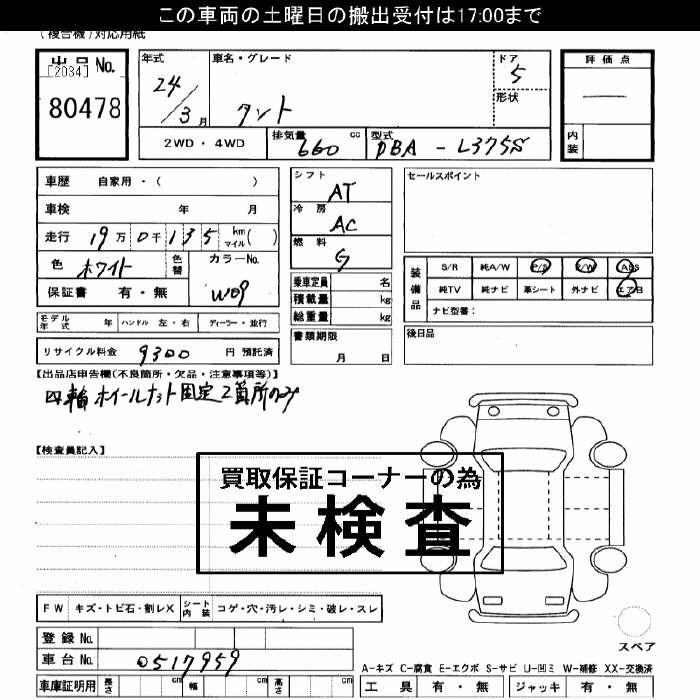 この車両の土曜日の搬出受付は17:00まで
(複合機)対応用紙
出品No.
[2034]
80478
年式
24/3月
車名・グレード
タント
ドア
5
形状
評価点
—
内装
2WD・4WD
排気量 660 cc
型式 DBA-L375S
車歴 自家用・( )
車検 年 月
走行 19万0千135 km マイル( )
色 ホワイト
色替
カラーNo.
W09
保証書 有・無
シフト
AT
冷房
AC
燃料
G
乗車定員 名
積載量 kg
総重量 kg
書類期限
月 日
セールスポイント
装備品
S/R 純A/W P/S P/W ABS
純TV 純ナビ 革シート 外ナビ エアB
ナビ型番:
後日品
モデル年式 年 ハンドル 左・右 ディーラー・並行
リサイクル料金 9300 円 預託済
【出品店申告欄(不良箇所・欠品・注意事項等)】
四輪ホイールナット固定2箇所のみ
【検査員記入】
買取保証コーナーの為
未検査
FW キズ・トビ石・割レX シート内装 コゲ・穴・汚レ・シミ・破レ・スレ
登録No.
車台No. 0517959
車庫証明用 長さ cm 幅 cm 高さ cm
スペア
A-キズ C-腐食 E-エクボ S-サビ U-凹ミ W-補修 XX-交換済
工具 有・無 ジャッキ 有・無